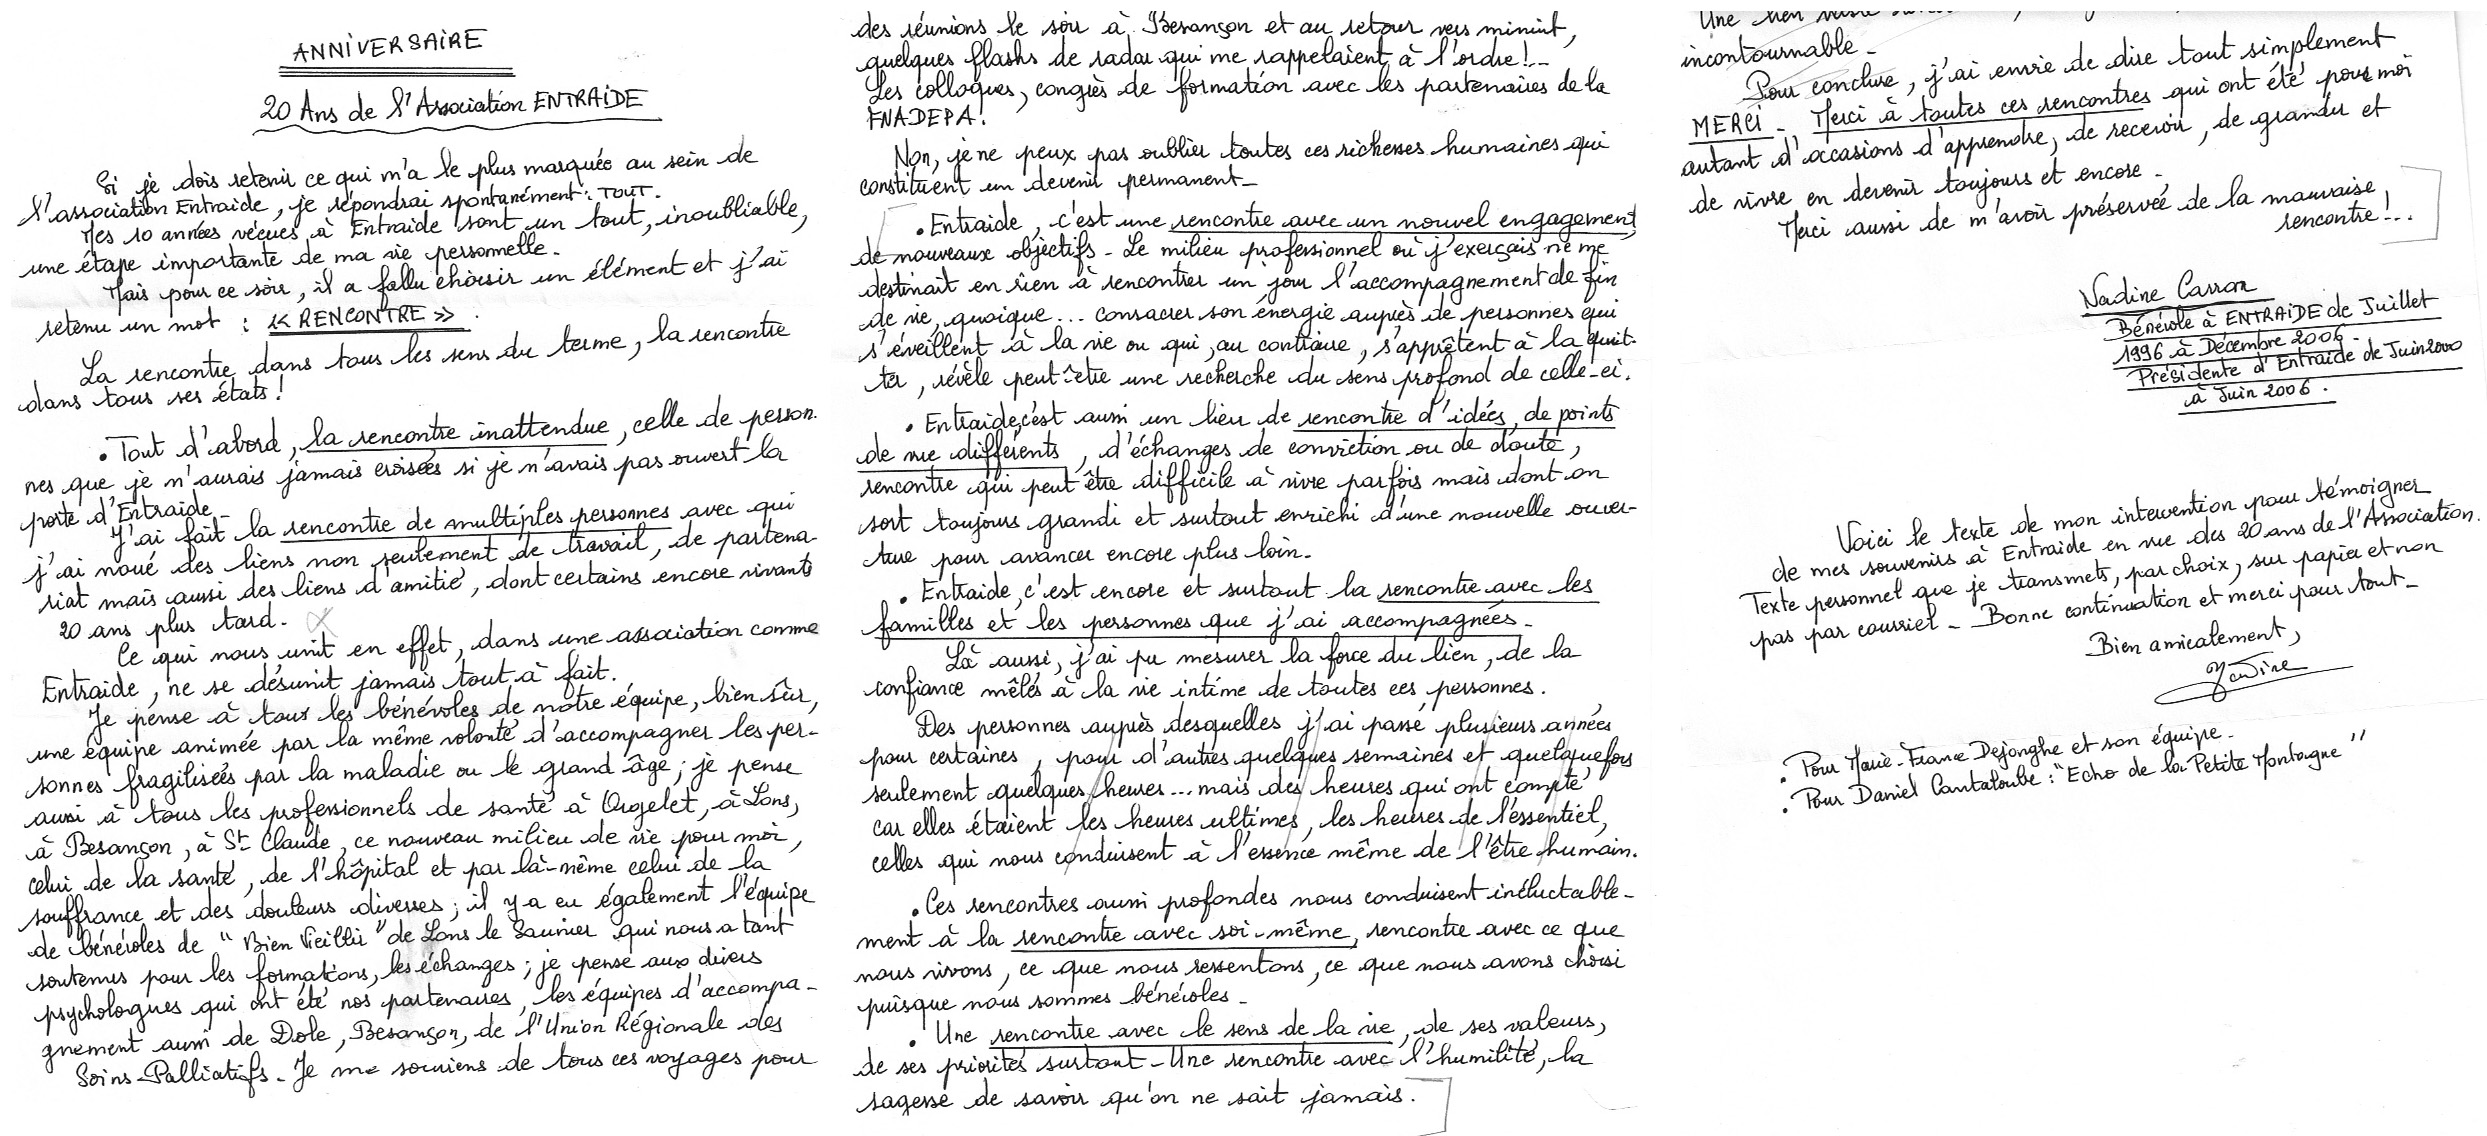 ANNIVERSAIRE
20 Ans de l'Association ENTRAIDE
Si je dois retenir ce qui m'a le plus marquée au sein de
l'association Entraide, je répondrai spontanément : TOUT.
Mes 10 années vécues à Entraide sont un tout, inoubliable,
une étape importante de ma vie personnelle.
Mais pour ce soir, il a fallu choisir un élément et j'ai
retenu un mot : « RENCONTRE ».
La rencontre dans tous les sens du terme, la rencontre
dans tous ses états !
• Tout d'abord, la rencontre inattendue, celle de person-
nes que je n'aurais jamais croisées si je n'avais pas ouvert la
porte d'Entraide.
J'ai fait la rencontre de multiples personnes avec qui
j'ai noué des liens non seulement de travail, de partena-
riat mais aussi des liens d'amitié, dont certains encore vivants
20 ans plus tard.
Ce qui nous unit en effet, dans une association comme
Entraide, ne se désunit jamais tout à fait.
Je pense à tous les bénévoles de notre équipe, bien sûr,
une équipe animée par la même volonté d'accompagner les per-
sonnes fragilisées par la maladie ou le grand âge ; je pense
aussi à tous les professionnels de santé à Orgelet, à Lons,
à Besançon, à St Claude, ce nouveau milieu de vie pour moi,
celui de la santé, de l'hôpital et par là-même celui de la
souffrance et des douleurs diverses ; il y a eu également l'équipe
de bénévoles de "Bien Vieillir" de Lons le Saunier qui nous a tant
soutenus pour les formations, les échanges ; je pense aux divers
psychologues qui ont été nos partenaires, les équipes d'accompa-
gnement aussi de Dole, Besançon, de l'Union Régionale des
Soins-Palliatifs. Je me souviens de tous ces voyages pour
des réunions le soir à Besançon et au retour vers minuit,
quelques flashs de radar qui me rappelaient à l'ordre !..
Les colloques, congrès de formation avec les partenaires de la
FNADEPA.
Non, je ne peux pas oublier toutes ces richesses humaines qui
constituent un devenir permanent.
• Entraide, c'est une rencontre avec un nouvel engagement,
de nouveaux objectifs - Le milieu professionnel où j'exerçais ne me
destinait en rien à rencontrer un jour l'accompagnement de fin
de vie, quoique... consacrer son énergie auprès de personnes qui
s'éveillent à la vie ou qui, au contraire, s'apprêtent à la quit-
ter, révèle peut-être une recherche du sens profond de celle-ci.
• Entraide, c'est aussi un lieu de rencontre d'idées, de points
de vue différents, d'échanges de conviction ou de doute,
rencontre qui peut être difficile à vivre parfois mais dont on
sort toujours grandi et surtout enrichi d'une nouvelle ouver-
ture pour avancer encore plus loin.
• Entraide, c'est encore et surtout la rencontre avec les
familles et les personnes que j'ai accompagnées.
Là aussi, j'ai pu mesurer la force du lien, de la
confiance mêlés à la vie intime de toutes ces personnes.
Des personnes auprès desquelles j'ai passé plusieurs années
pour certaines, pour d'autres quelques semaines et quelquefois
seulement quelques heures... mais des heures qui ont compté
car elles étaient les heures ultimes, les heures de l'essentiel,
celles qui nous conduisent à l'essence même de l'être humain.
• Ces rencontres aussi profondes nous conduisent inéluctable-
ment à la rencontre avec soi-même, rencontre avec ce que
nous vivons, ce que nous ressentons, ce que nous avons choisi
puisque nous sommes bénévoles.
• Une rencontre avec le sens de la vie, de ses valeurs,
de ses priorités surtout - Une rencontre avec l'humilité, la
sagesse de savoir qu'on ne sait jamais.
Une
incontournable.
Pour conclure, j'ai envie de dire tout simplement
MERCI - Merci à toutes ces rencontres qui ont été pour moi
autant d'occasions d'apprendre, de recevoir, de grandir et
de vivre en devenir toujours et encore.
Merci aussi de m'avoir préservée de la mauvaise
rencontre !..
Nadine Carron
Bénévole à ENTRAIDE de Juillet
1996 à Décembre 2006.
Présidente d'Entraide de Juin 2000
à Juin 2006.
Voici le texte de mon intervention pour témoigner
de mes souvenirs à Entraide en vue des 20 ans de l'Association.
Texte personnel que je transmets, par choix, sur papier et non
pas par courriel - Bonne continuation et merci pour tout.
Bien amicalement,
Nadine
• Pour Marie-France Dejonghe et son équipe.
• Pour Daniel Cantaloube : "Echo de la Petite Montagne"